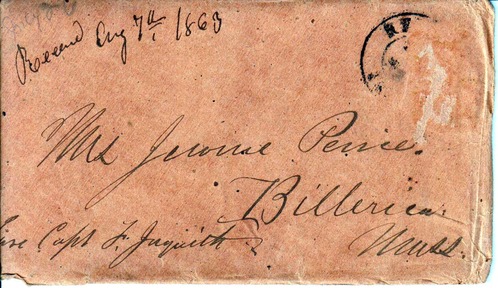 Received Aug 7th 1863
Mrs Jerome Peirce.
Billerica
Mass.
Care Capt F. Jaquith